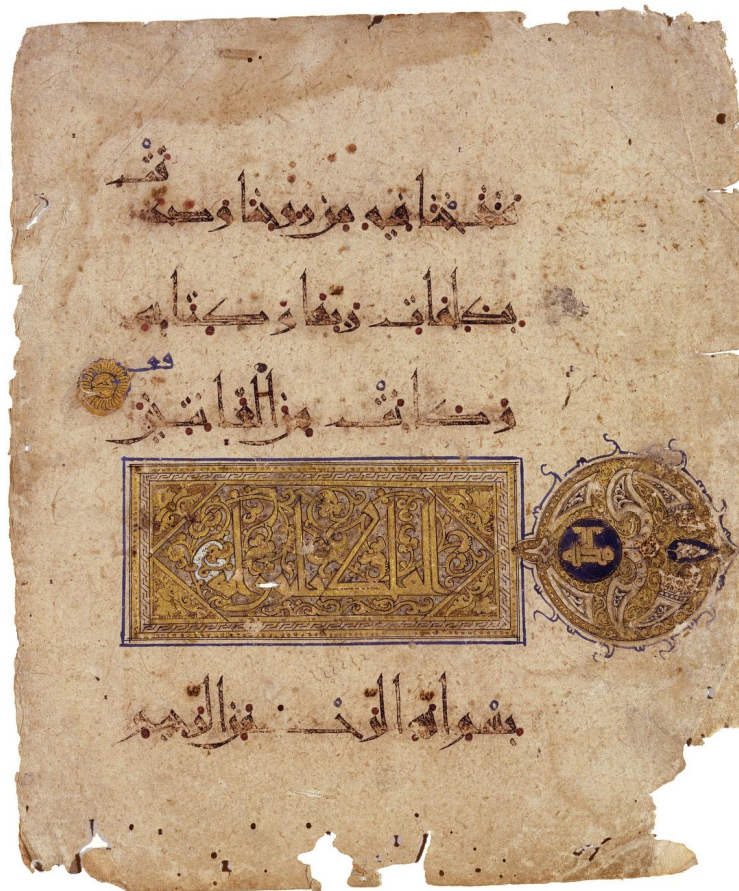 فنفخنا فيه من روحنا وصدقت
بكلمات ربها و كتابه
وكانت من القانتين
بسم الله الرحمن الرحيم